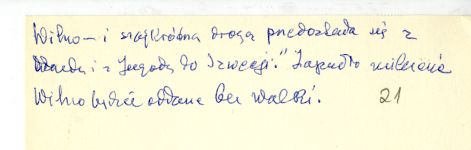 Wilno – i najkrótszą drogą przedostała się z
i z Jugosł. do Szwecji." Zapadło milczenie
Wilno będzie oddane bez walki. 21